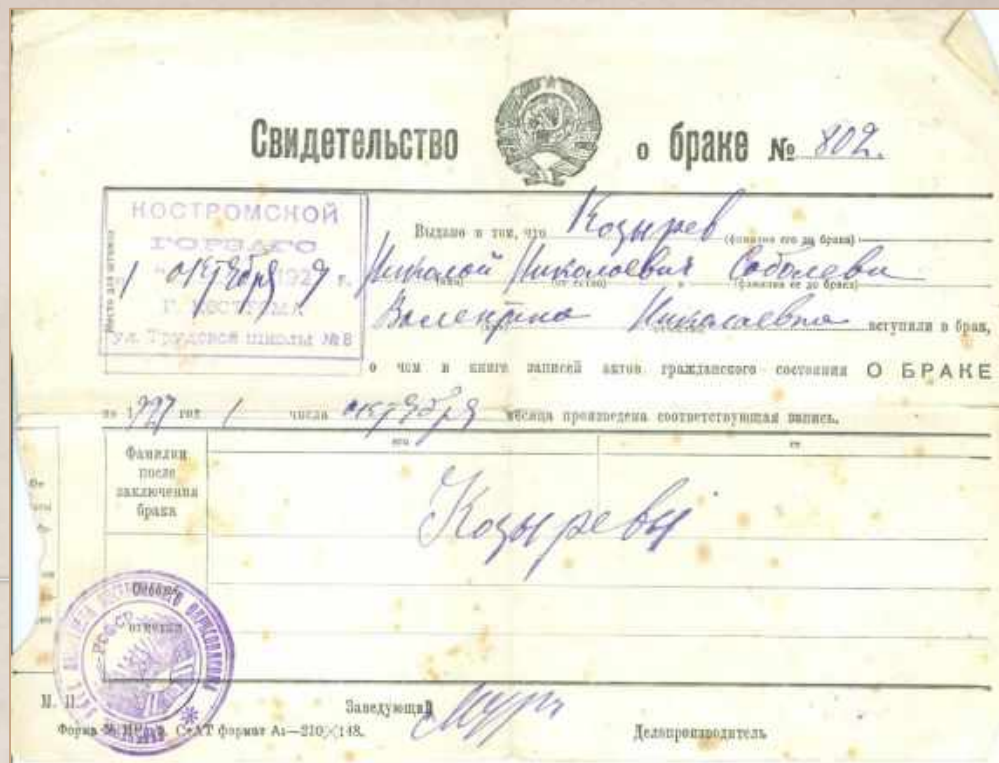 Свидетельство о браке № 802.
КОСТРОМСКОЙ
ГОРЗАГС
1 октября 1929 г.
Г. КОСТРОМА
Ул. Трудовой школы № 8
Место для штампа
Выдано в том, что Козырев
(фамилия его до брака)
Николай Николаевич и Соболева
(имя) (отчество) (фамилия ее до брака)
Валентина Николаевна вступили в брак,
о чем в книге записей актов гражданского состояния О БРАКЕ
за 1929 год 1 числа октября месяца произведена соответствующая запись.
Фамилии после заключения брака
его
ее
Козыревы
Особые отметки
РСФСР
М. П.
Заведующий
Делопроизводитель
формат А5—210×148.